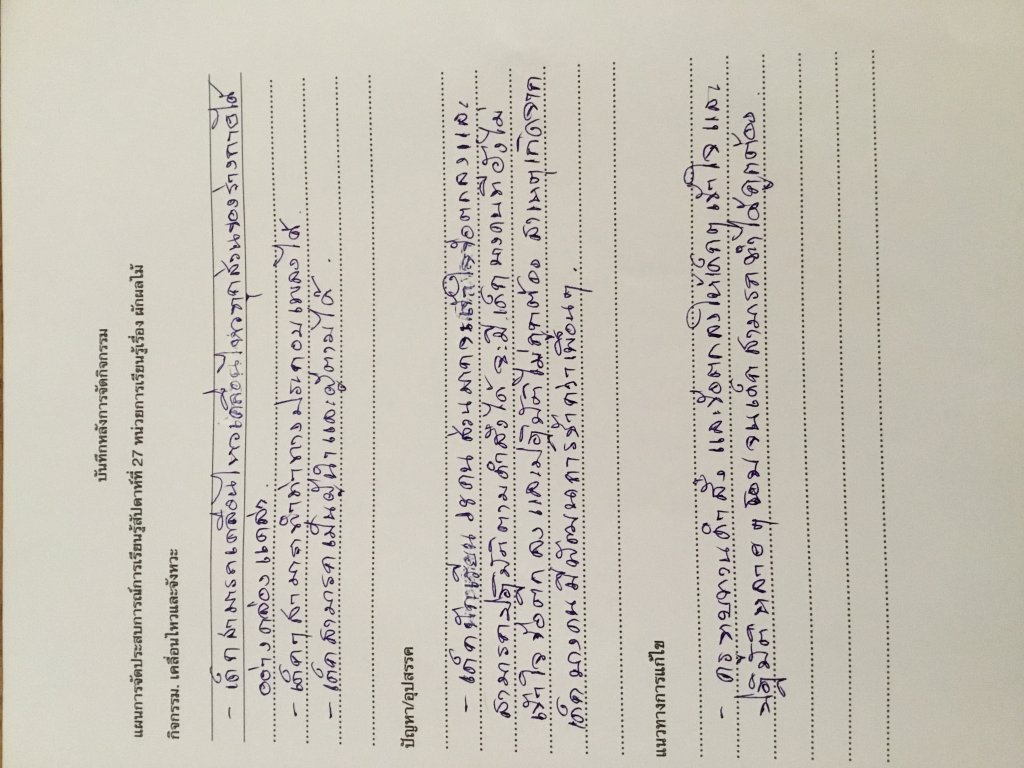 บันทึกหลังการจัดกิจกรรม
แผนการจัดประสบการณ์การเรียนรู้สัปดาที่ 27 หน่วยการเรียนรู้เรื่อง ผักผลไม้
กิจกรรม. เคลื่อนไหวและจังหวะ
- เด็กสามารถเคลื่อนไหวเคลื่อนไหวทุกส่วนของร่างกายได้
อย่างคล่องแคล่ว
- เด็กๆสามารถทำท่าทางประกอบเพลงได้
- เด็กสามารถเป็นผู้นำและผู้ตามได้ดี.
ปัญหา/อุปสรรค
- เด็กนักเรียน คน ส่วนมากจะเข้าใจข้อตกลงและ
สามารถปฏิบัติตามคำสั่งได้ จะมีเด็กบางคนที่ยังไม่
เข้าใจข้อตกลง และปฏิบัติไม่ถูกต้อง สาเหตุเกิดจาก
เด็กบางคนมีพัฒนาการช้ากว่าเพื่อนๆ.
แนวทางการแก้ไข
- ครูทบทวนคำสั่ง และข้อตกลงให้เด็กๆเข้าใจ และ
ปฏิบัติหลายๆรอบจนเด็กสามารถทำได้ถูกต้อง